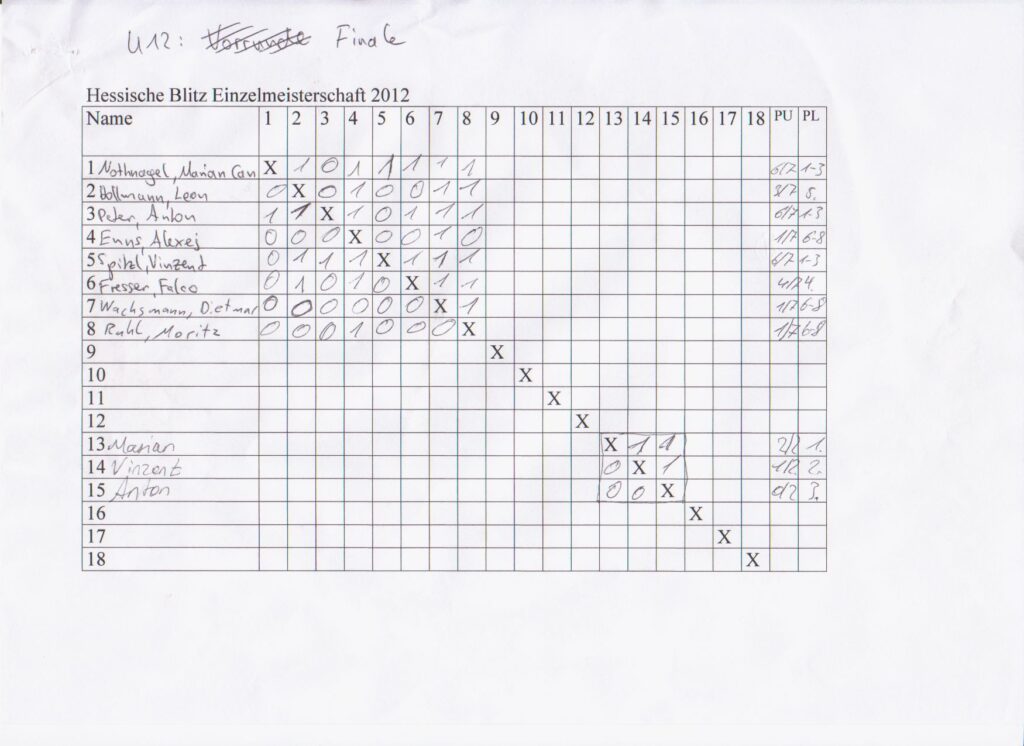 U12: Vorrunde Finale
Hessische Blitz Einzelmeisterschaft 2012
Name 1 2 3 4 5 6 7 8 9 10 11 12 13 14 15 16 17 18 PU PL
1 Nothnagel, Marian Can X 1 0 1 1 1 1 1 6/7 1-3
2 Hollmann, Leon 0 X 0 1 0 0 1 1 3/7 5.
3 Peter, Anton 1 1 X 1 0 1 1 1 6/7 1-3
4 Enns, Alexej 0 0 0 X 0 0 1 0 1/7 6-8
5 Spitzl, Vinzent 0 1 1 1 X 1 1 1 6/7 1-3
6 Fresser, Falco 0 1 0 1 0 X 1 1 4/7 4.
7 Wachsmann, Dietmar 0 0 0 0 0 0 X 1 1/7 6-8
8 Ruhl, Moritz 0 0 0 1 0 0 0 X 1/7 6-8
9 X
10 X
11 X
12 X
13 Marian X 1 1 2/2 1.
14 Vinzent 0 X 1 1/2 2.
15 Anton 0 0 X 0/2 3.
16 X
17 X
18 X